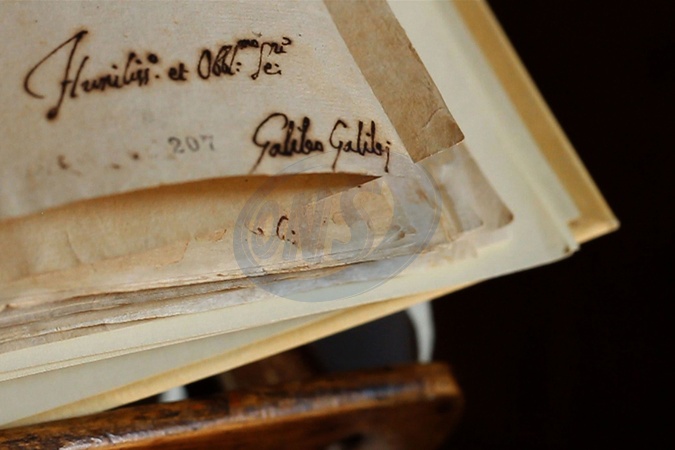 Humiliss.º et Obbl.mo Se.re
207
Galileo Galilei
ANSA